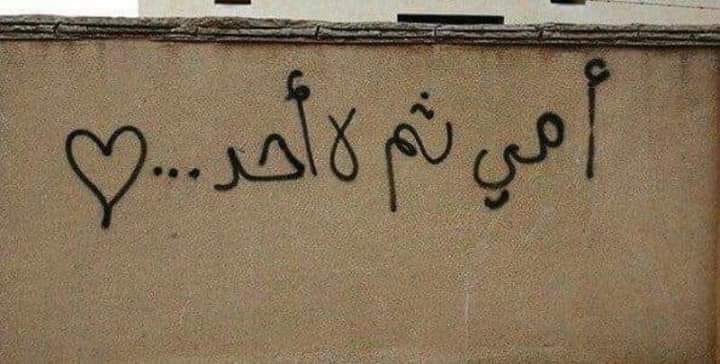 أمي ثم لا أحد...♡